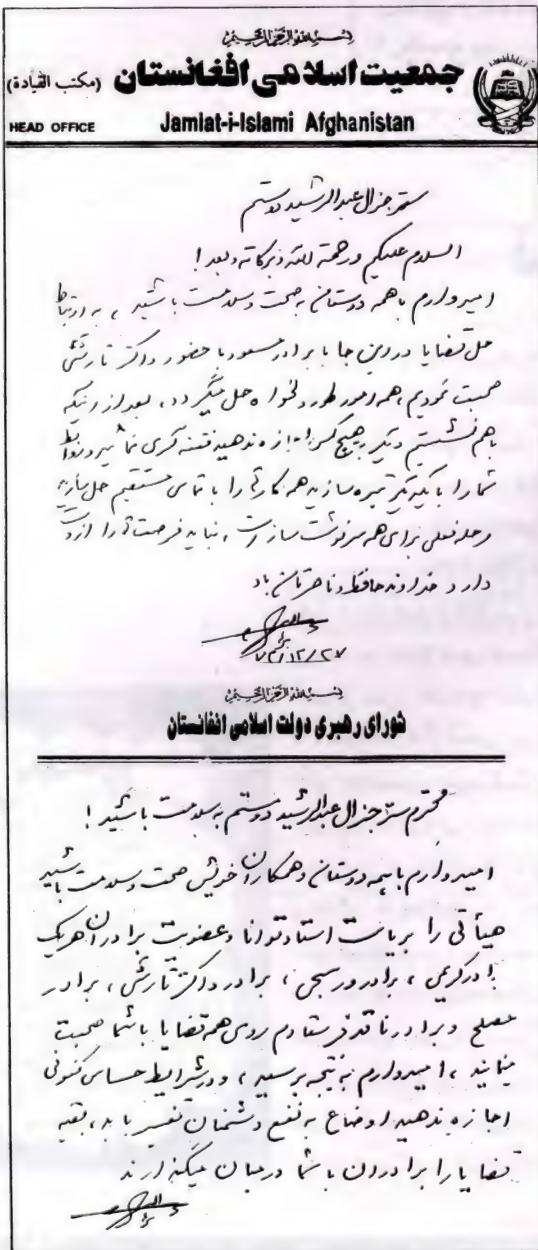 بسم الله الرحمن الرحيم
جمعیت اسلامی افغانستان (مکتب القیادة)
HEAD OFFICE Jamiat-i-Islami Afghanistan
محترم ستر جنرال عبدالرشید دوستم
السلام علیکم ورحمة الله وبرکاته وبعد!
امیدوارم با همه دوستان به صحت وسلامت باشید، به ارتباط
حل قضایا در این جا با برادر مسعود با حضور داکتر تارشی
صحبت نمودیم، همه امور طور دلخواه حل میگردد، بعد از اینکه
باهم نشستیم دیگر به هیچ کس اجازه ندهید فتنه گری نماید و روابط
شما را با یکدیگر تیره سازید همه کارها را با تماس مستقیم حل سازید
مرحله فعلی برای همه سرنوشت ساز است، نباید فرصت ها را از دست
داد خداوند حافظ و ناصرتان باد
۷۲/۱۲/۲۷
بسم الله الرحمن الرحیم
شورای رهبری دولت اسلامی افغانستان
محترم ستر جنرال عبدالرشید دوستم به سلامت باشید!
امیدوارم با همه دوستان و همکاران خویش صحت وسلامت باشید
هیأتی را بریاست استاد توانا و عضویت برادران هریک
برادر کریمی، برادر ورسجی، برادر داکتر تارشی، برادر
مصلح و برادر ناقد فرستادم روی همه قضایا با شما صحبت
مینمایند، امیدوارم به نتیجه برسید، و در شرایط حساس کنونی
اجازه ندهید اوضاع به نفع دشمنان تغییر یابد، بقیه
قضایا را برادران با شما درمیان میگذارند